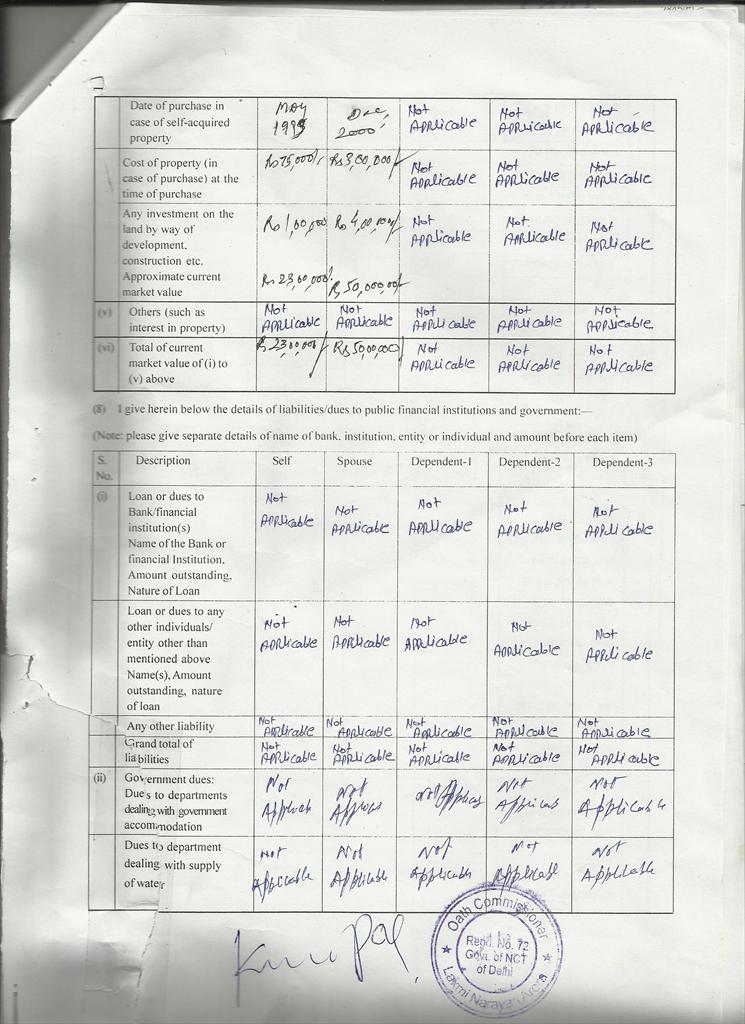 Date of purchase in case of self-acquired property
MAY 1995 Dec, 2000 Not Applicable Not Applicable Not Applicable
Cost of property (in case of purchase) at the time of purchase
Rs 75,000/- Rs 3,00,000/- Not Applicable Not Applicable Not Applicable
Any investment on the land by way of development, construction etc.
Rs 1,00,000 Rs 4,00,000/- Not Applicable Not Applicable Not Applicable
Approximate current market value
Rs 23,00,000/- Rs 50,00,000/-
(v) Others (such as interest in property)
Not Applicable Not Applicable Not Applicable Not Applicable Not Applicable
(vi) Total of current market value of (i) to (v) above
Rs 2300,000/- Rs 5000,000/- Not Applicable Not Applicable Not Applicable
(8) I give herein below the details of liabilities/dues to public financial institutions and government:—
(Note: please give separate details of name of bank, institution, entity or individual and amount before each item)
S. No. Description Self Spouse Dependent-1 Dependent-2 Dependent-3
(i) Loan or dues to Bank/financial institution(s)
Name of the Bank or financial Institution, Amount outstanding, Nature of Loan
Not Applicable Not Applicable Not Applicable Not Applicable Not Applicable
Loan or dues to any other individuals/ entity other than mentioned above
Name(s), Amount outstanding, nature of loan
Not Applicable Not Applicable Not Applicable Not Applicable Not Applicable
Any other liability
Not Applicable Not Applicable Not Applicable Not Applicable Not Applicable
Grand total of liabilities
Not Applicable Not Applicable Not Applicable Not Applicable Not Applicable
(ii) Government dues:
Dues to departments dealing with government accommodation
Not Not Not Not Not Applicable
Dues to department dealing with supply of water
Not Applicable Not Applicable Not Applicable Not Applicable Not Applicable
Oath Commissioner
Regd. No. 72
Govt. of NCT
of Delhi
Lakmi Narayan Arora